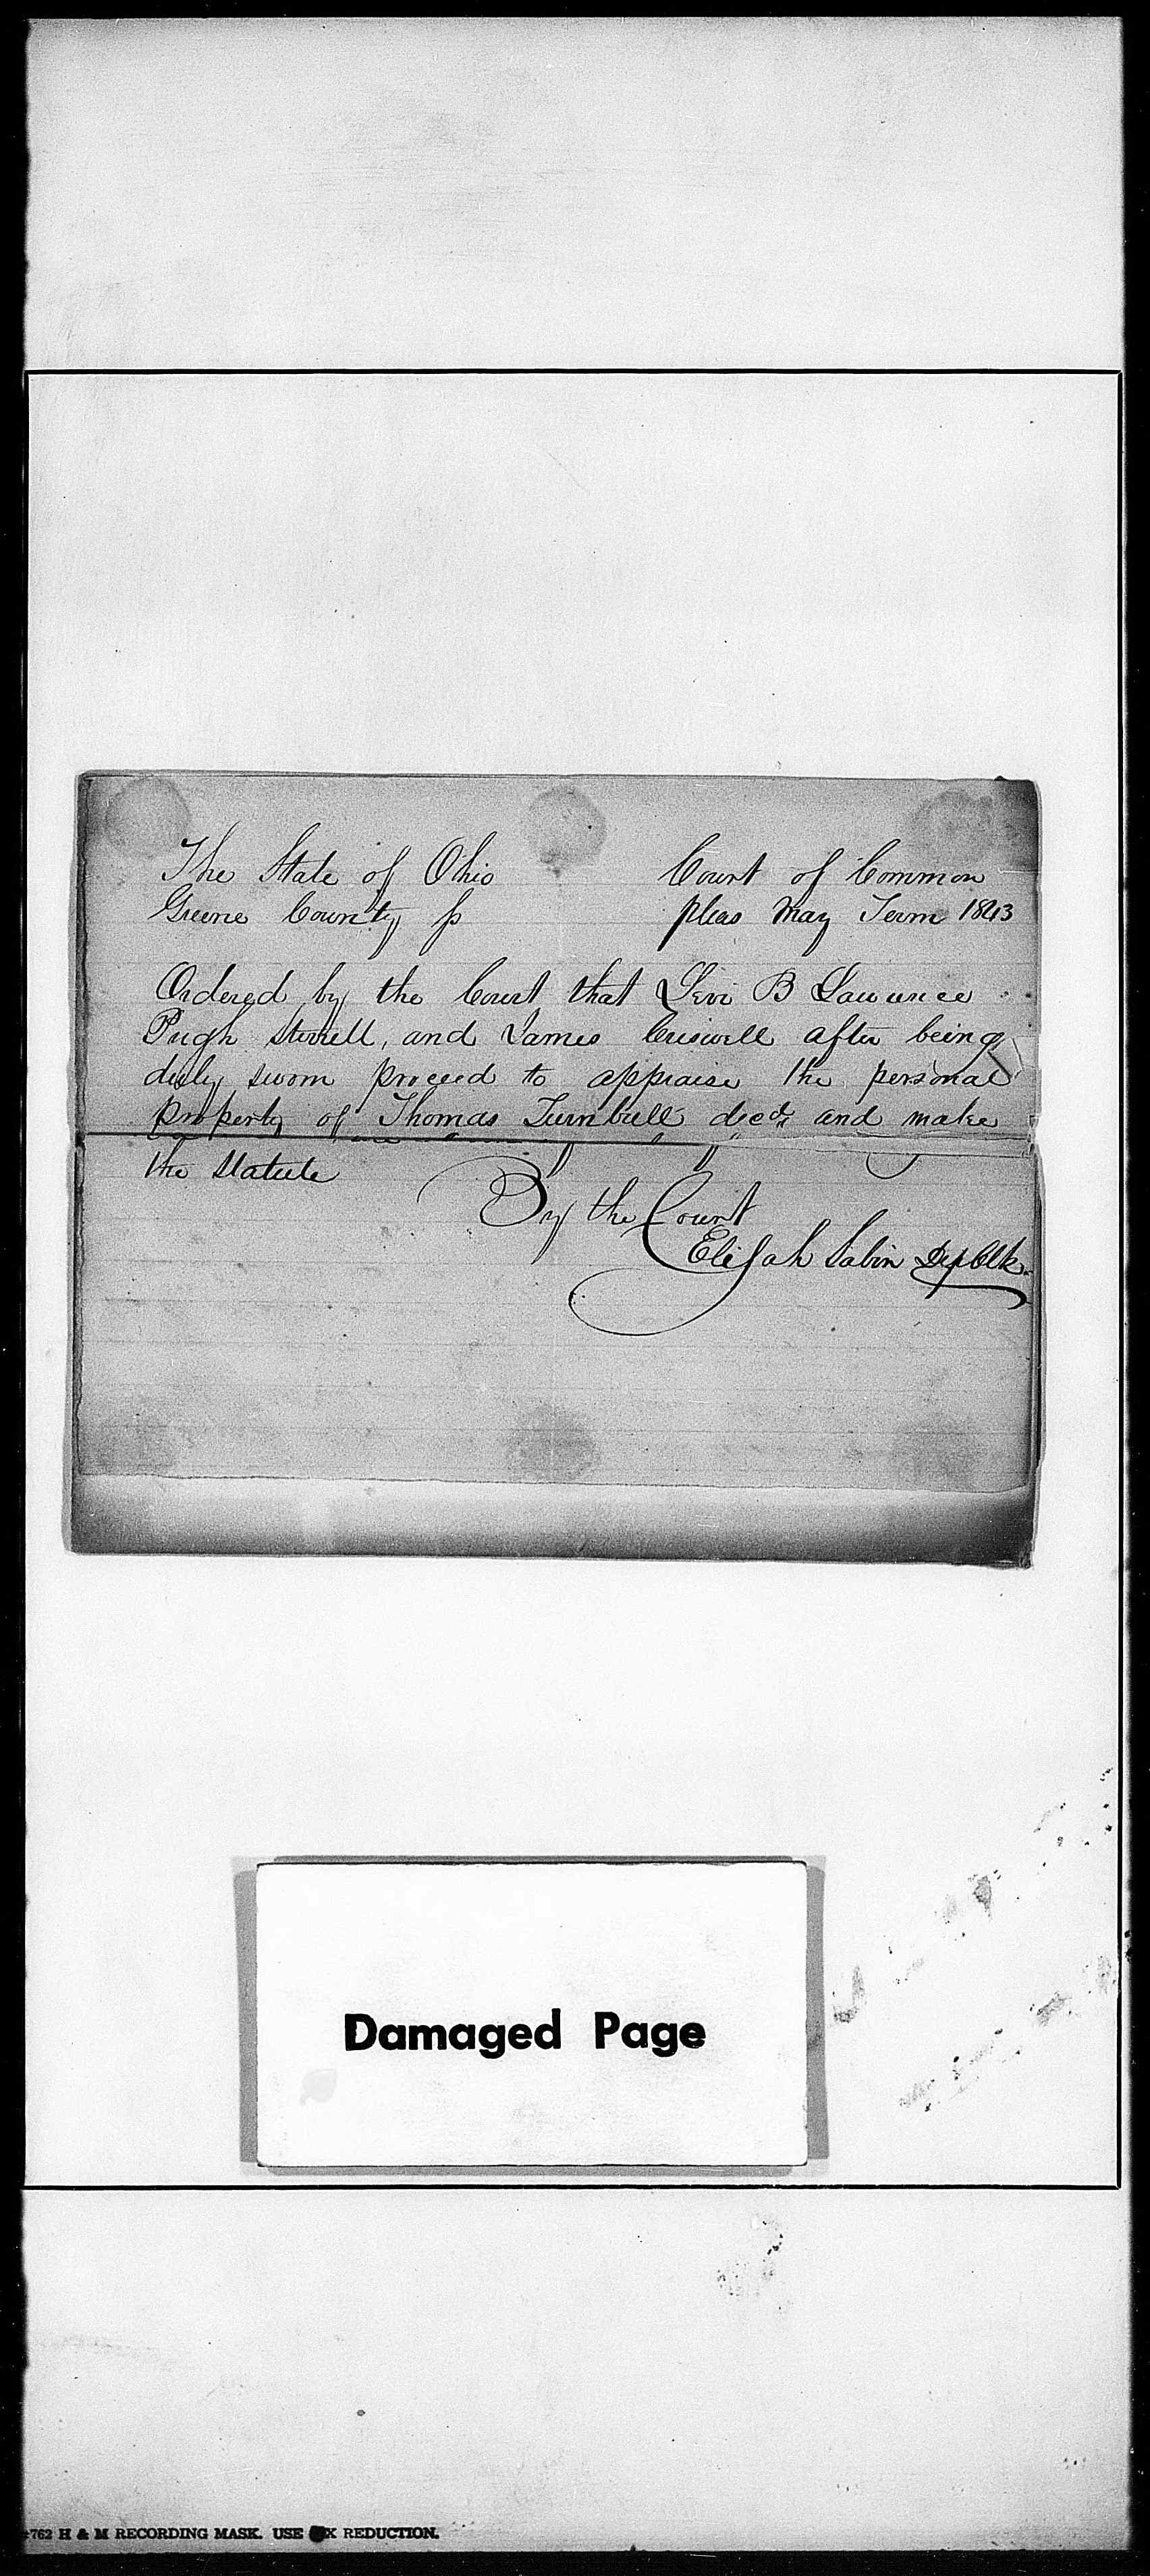 The State of Ohio
Greene County ss
Court of Common
pleas May Term 1843
Ordered by the Court that Levi B Lawrence
Pugh Sterrell, and James Criswell after being
duly sworn proceed to appraise the personal
property of Thomas Turnbull decd. and make
the Statute
By the Court
Elijah Sabin Dep Clk.
Damaged Page
762 H & M RECORDING MASK. USE X REDUCTION.